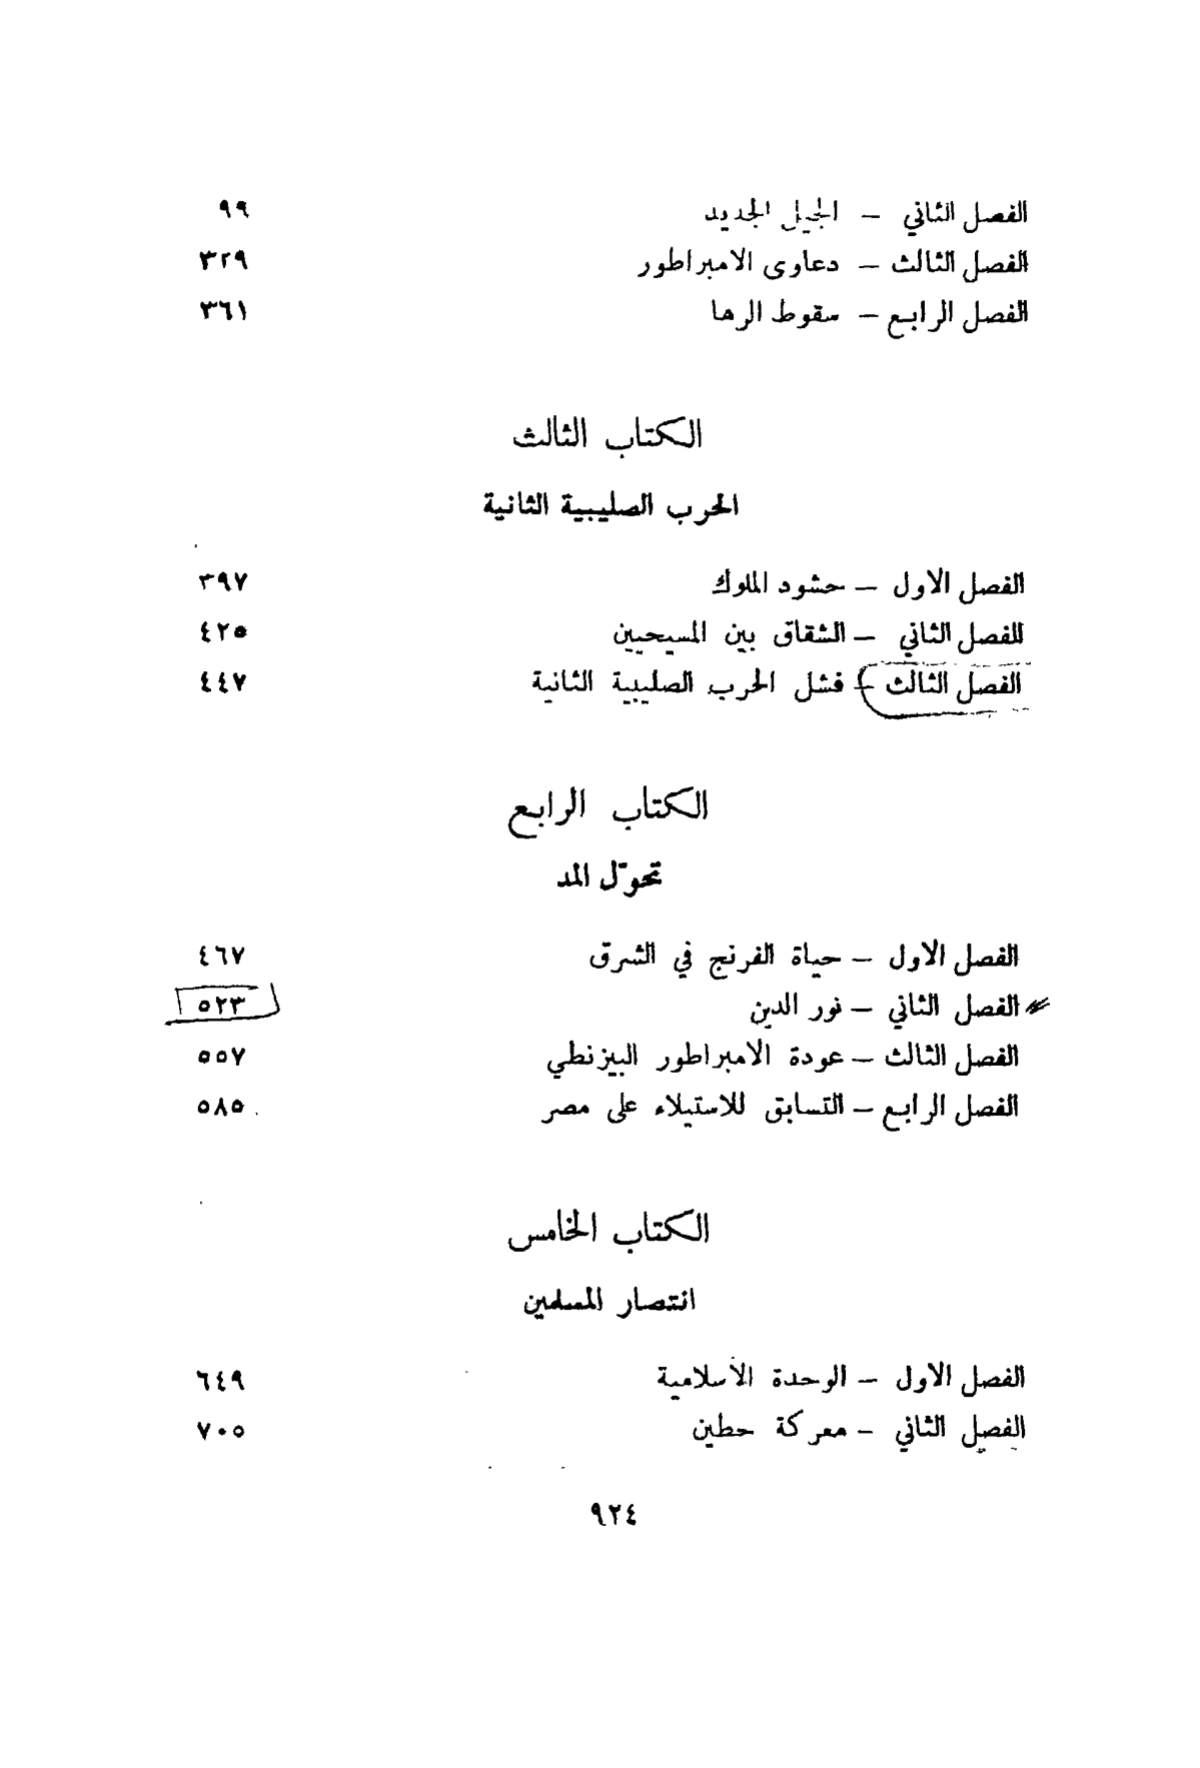 الفصل الثاني – الجيل الجديد ٩٩
الفصل الثالث – دعاوى الامبراطور ٣٢٩
الفصل الرابع – سقوط الرها ٣٦١
الكتاب الثالث
الحرب الصليبية الثانية
الفصل الاول – حشود الملوك ٣٩٧
الفصل الثاني – الشقاق بين المسيحيين ٤٢٥
الفصل الثالث – فشل الحرب الصليبية الثانية ٤٤٧
الكتاب الرابع
تحوّل المد
الفصل الاول – حياة الفرنج في الشرق ٤٦٧
الفصل الثاني – نور الدين ٥٢٣
الفصل الثالث – عودة الامبراطور البيزنطي ٥٥٧
الفصل الرابع – التسابق للاستيلاء على مصر ٥٨٥
الكتاب الخامس
انتصار المسلمين
الفصل الاول – الوحدة الاسلامية ٦٤٩
الفصل الثاني – معركة حطين ٧٠٥
٩٢٤